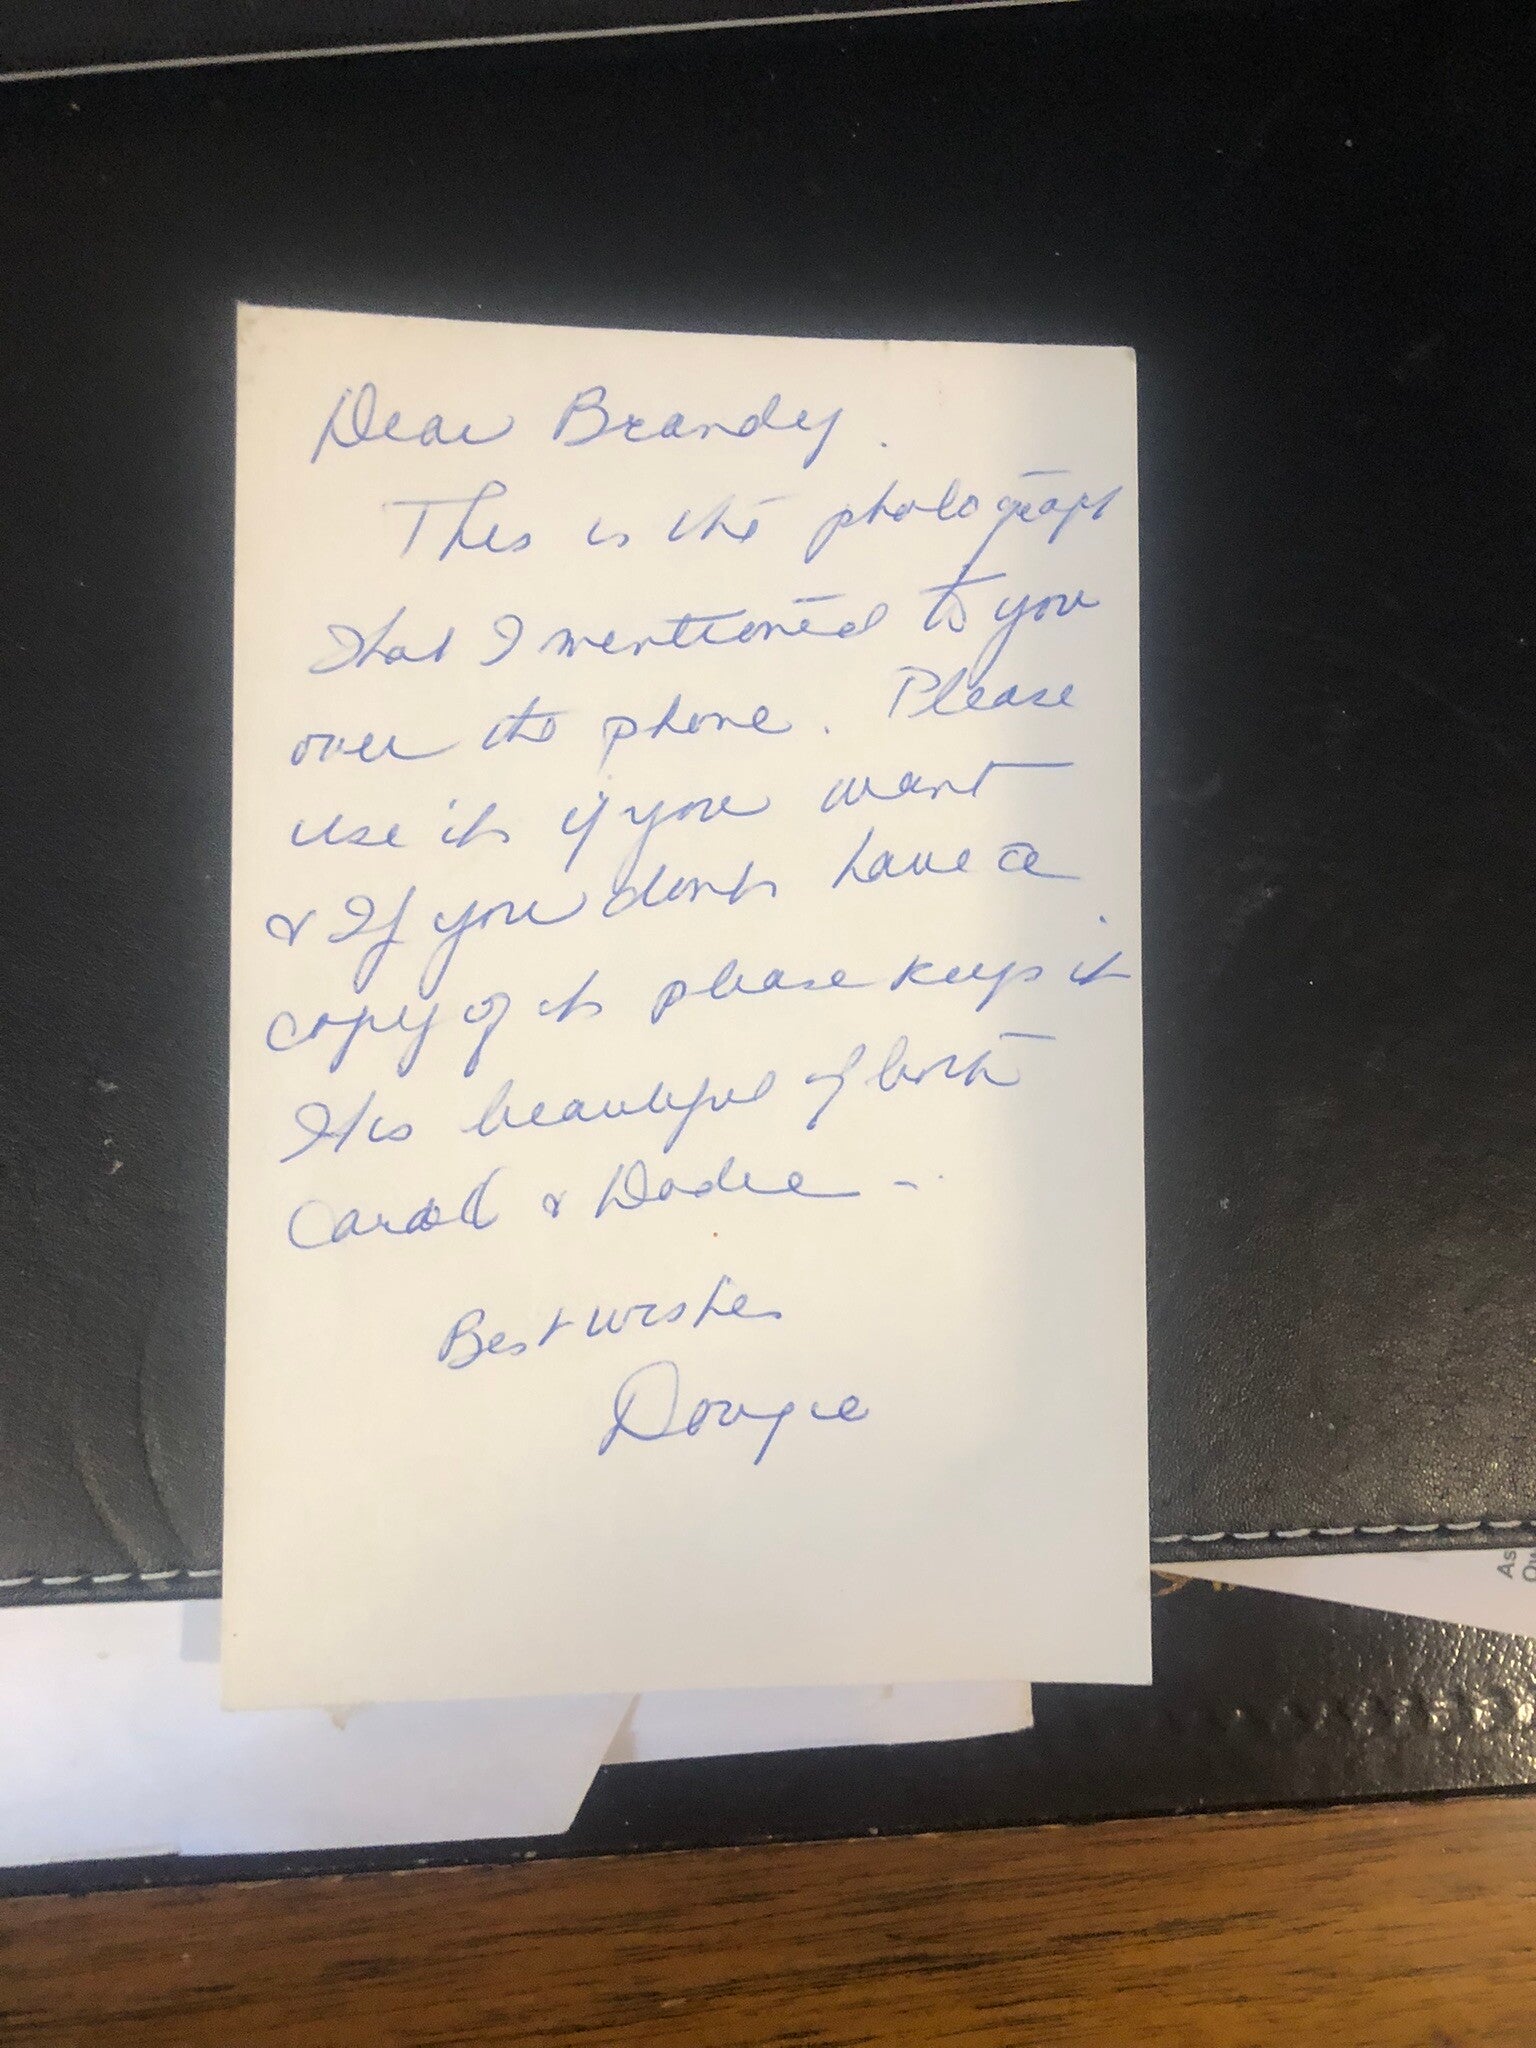 Dear Brandy.
This is the photograph
that I mentioned to you
over the phone. Please
use it if you want
& If you dont have a
copy of it please keep it
It is beautiful of both
Caroll & Dodie -
Best wishes
Dougie
As